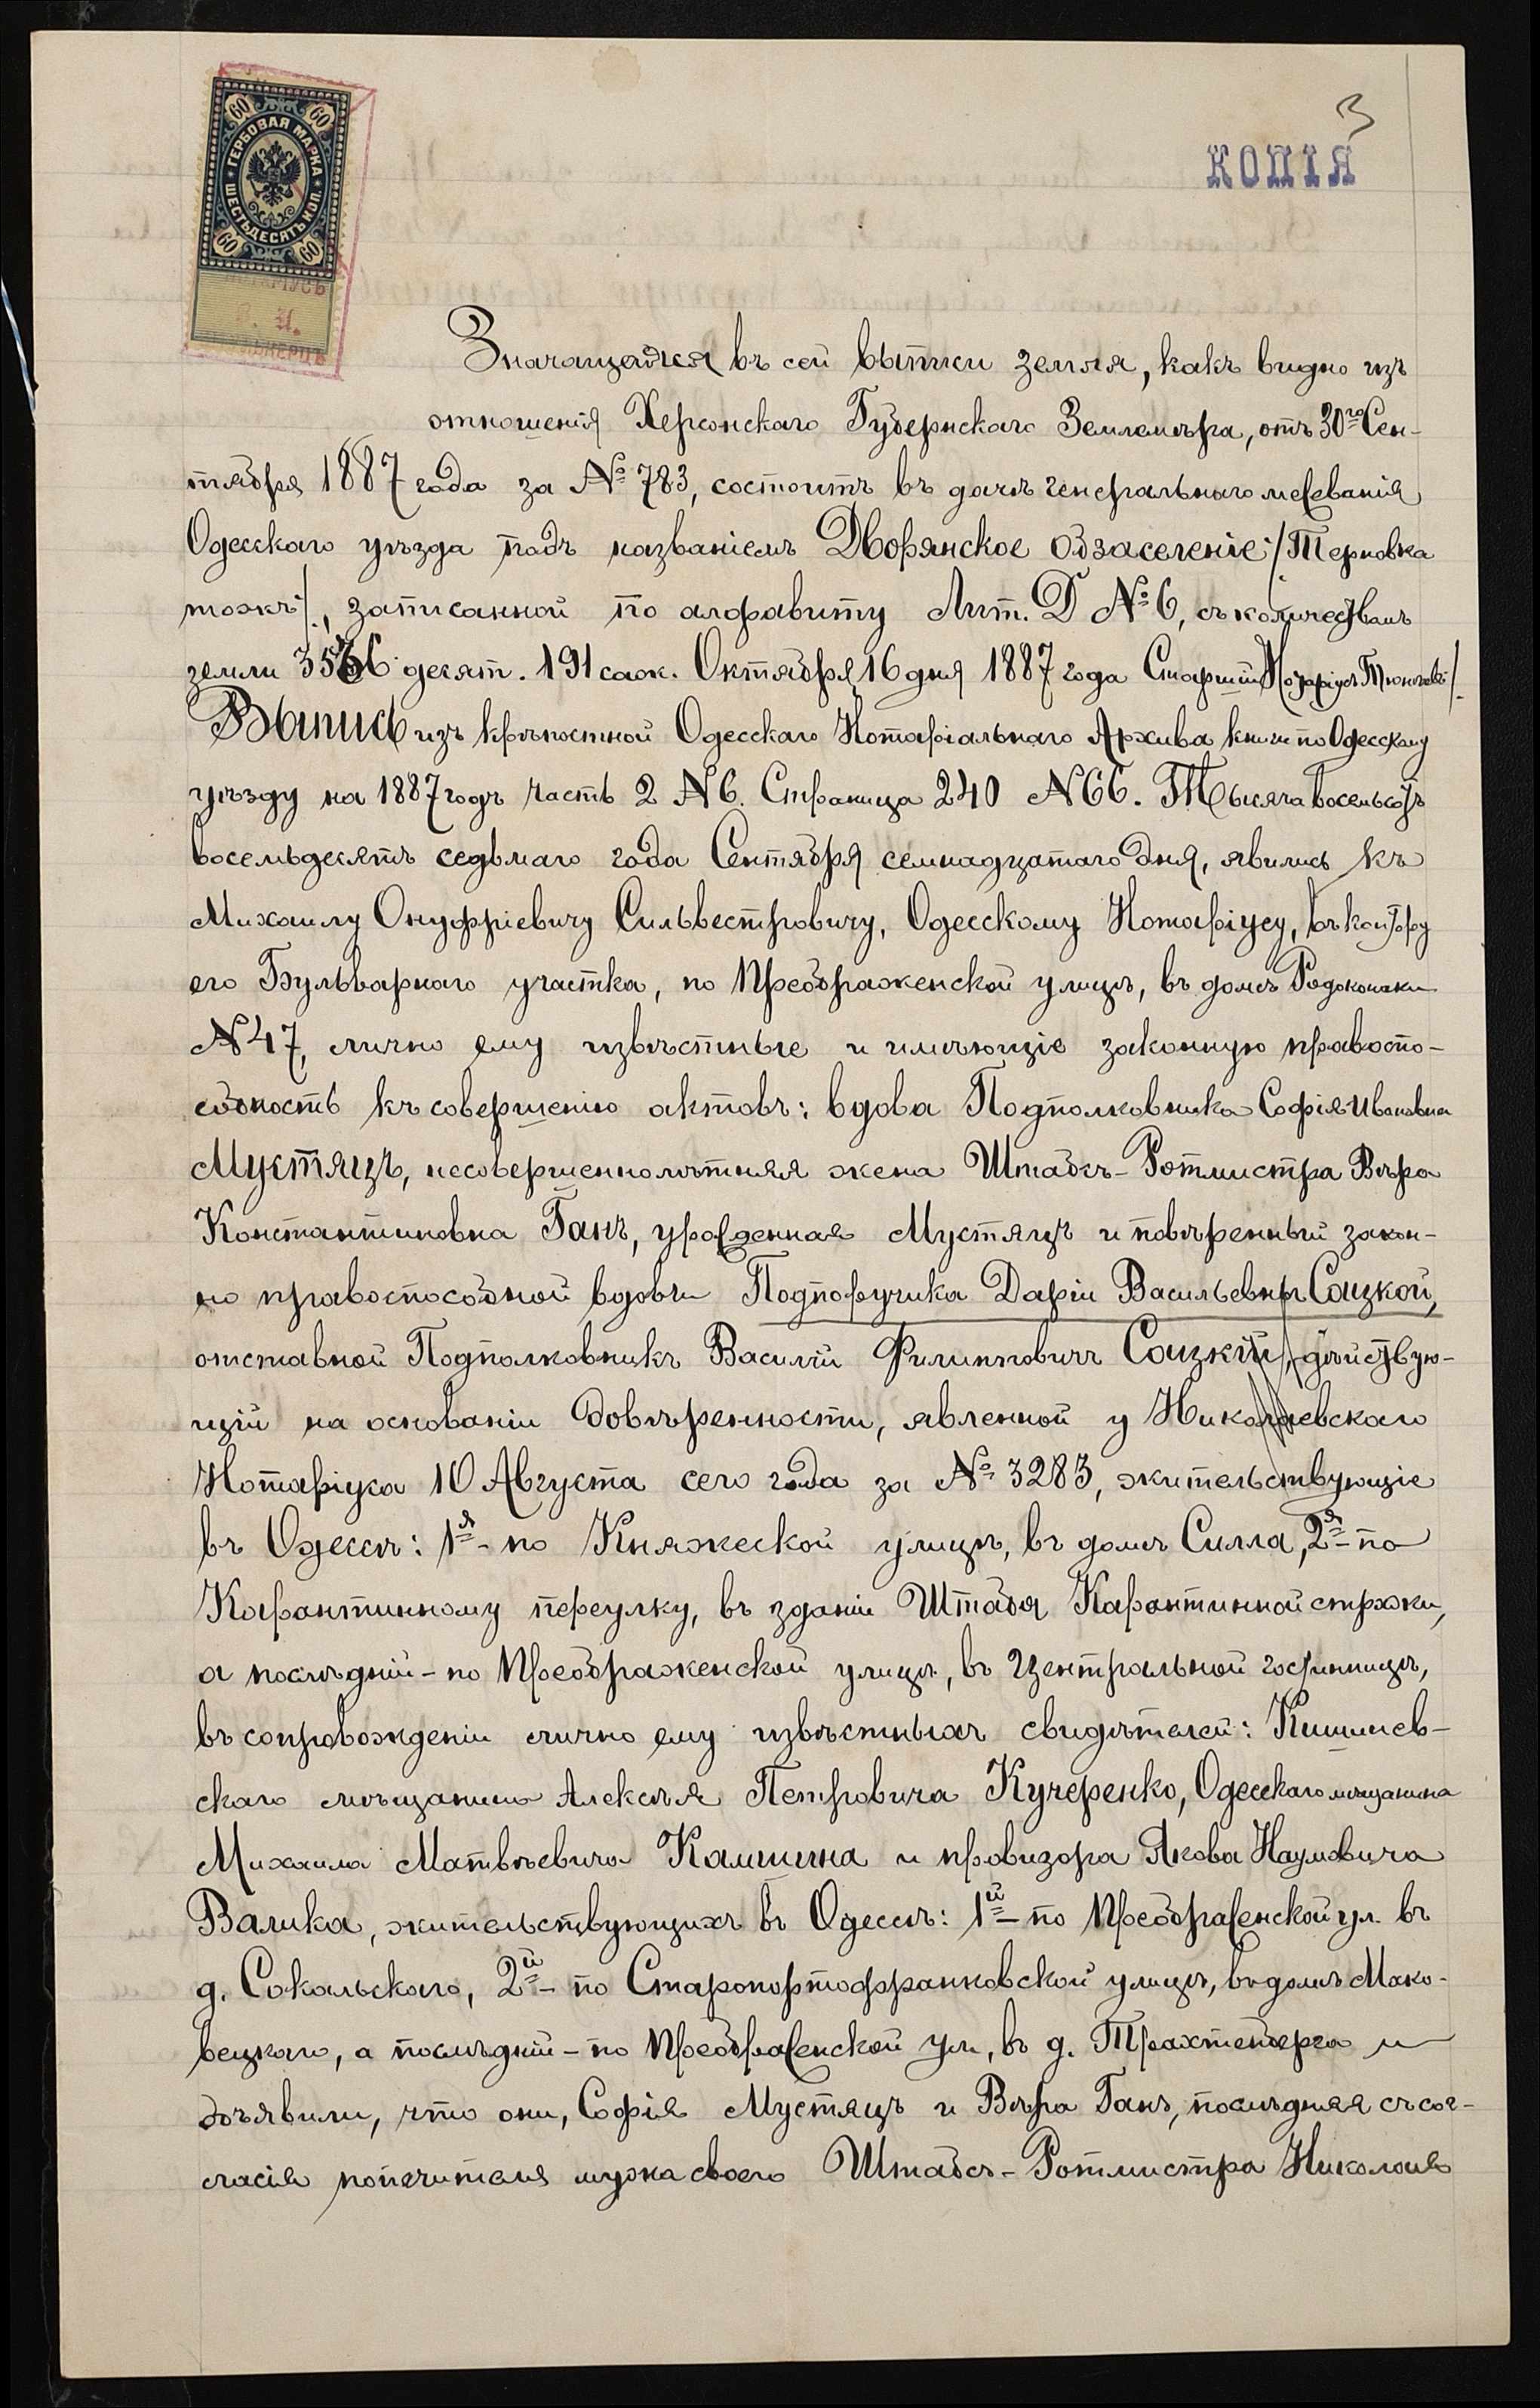 3
КОПІЯ
60 60
ГЕРБОВАЯ МАРКА
ШЕСТЬДЕСЯТЪ КОП.
60 60
Значащаяся въ сей выписи земля, какъ видно изъ
отношенія Херсонскаго Губернскаго Землемѣра, отъ 30го Сен-
тября 1887 года за № 783, состоитъ въ дачѣ генеральнаго межеванія
Одесскаго уѣзда подъ названіемъ Дворянское Обзаселеніе /Терновка
тожъ/, записанной по алфавиту Лит. Д № 6, съ количествомъ
земли десят. 191 саж. Октября 16 дня 1887 года Старшій Нотаріусъ
Выпись изъ крѣпостной Одесскаго Нотаріальнаго Архива книги по Одесскому
уѣзду на 1887 годъ часть 2 N 6. Страница 240 N 66. Тысяча восемьсотъ
восемьдесятъ седьмаго года Сентября семнадцатаго дня, явились къ
Михаилу Онуфріевичу Сильвестровичу, Одесскому Нотаріусу, въ контору
его Бульварнаго участка, по Преображенской улицѣ, въ домѣ Родоконаки
N 47, лично ему извѣстные и имѣющіе законную правоспо-
собность къ совершенію актовъ: вдова Подполковника Софія Ивановна
Мустяцъ, несовершеннолѣтняя жена Штабсъ-Ротмистра Вѣра
Константиновна Ганъ, урожденная Мустяцъ и повѣренный закон-
но правоспособной вдовы Подпоручика Даріи Васильевны Соцкой,
отставной Подполковникъ Василій Филипповичъ Соцкій, дѣйствую-
щій на основаніи довѣренности, явленной у Николаевскаго
Нотаріуса 10 Августа сего года за № 3283, жительствующіе
въ Одессѣ: 1я - по Княжеской улицѣ, въ домѣ Силла, 2я - по
Карантинному переулку, въ зданіи Штаба Карантинной стражи,
а послѣдній - по Преображенской улицѣ, въ Центральной гостинницѣ,
въ сопровожденіи лично ему извѣстныхъ свидѣтелей: Кишинев-
скаго мѣщанина Алексѣя Петровича Кучеренко, Одесскаго мѣщанина
Михаила Матвѣевича Камшина и провизора Якова Наумовича
Валика, жительствующихъ въ Одессѣ: 1й - по Преображенской ул. въ
д. Сокальскаго, 2й - по Старопортофранковской улицѣ, въ домѣ Мако-
вецкаго, а послѣдній - по Преображенской ул., въ д. Трахтенберга и
объявили, что они, Софія Мустяцъ и Вѣра Ганъ, послѣдняя съ сог-
ласія попечителя мужа своего Штабсъ-Ротмистра Николая